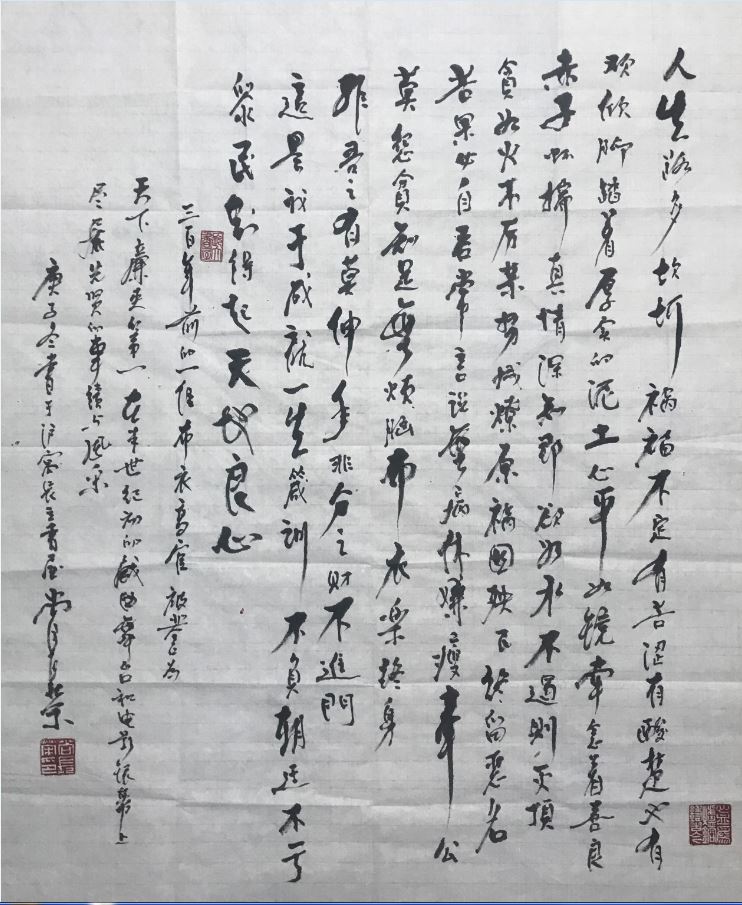 人生路多坎坷祸福不定有苦涩有酸楚也有
欢欣脚踏着厚实的泥土心平如镜牵念着善良
赤子怀揣真情深知那欲如水不遏则灭顶
贪如火不厉禁势成燎原祸国殃民终留恶名
若果必自吾常言说无病休嫌瘦奉公
莫怨贫知足无烦恼布衣乐终身
非吾之有莫伸手非分之财不进门
这是我于成龙一生箴训不负朝廷不亏
众民对得起天地良心
三百年前的一位布衣高官被誉为
天下廉吏第一在本世纪初的戏曲舞台和电影银幕上
尽展先贤的事绩与风采
庚子冬书于